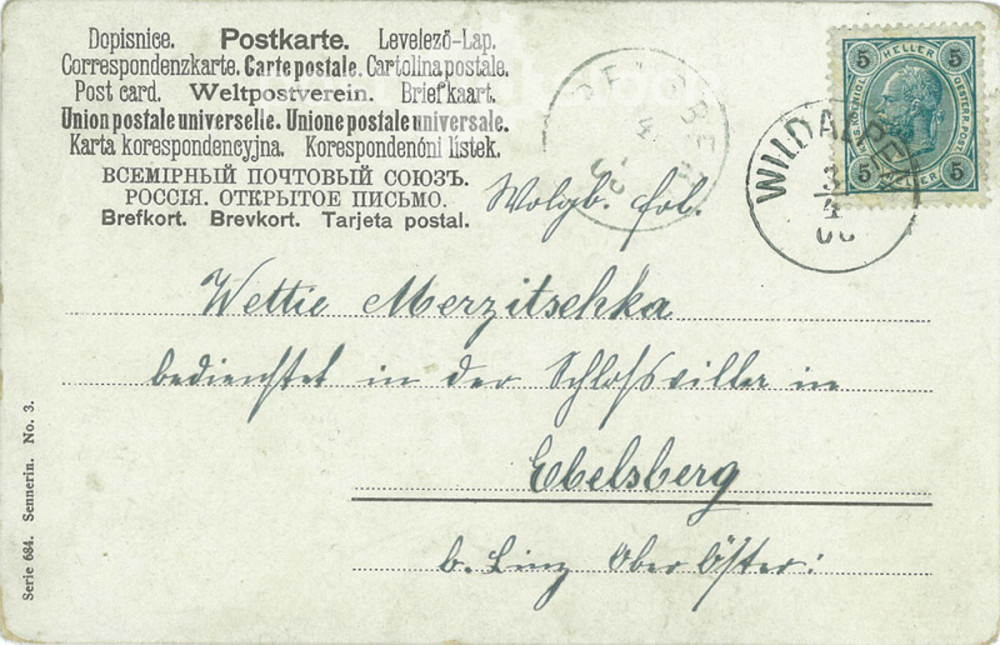 Dopisnice. Postkarte. Levelező-Lap.
Correspondenzkarte. Carte postale. Cartolina postale.
Post card. Weltpostverein. Briefkaart.
Union postale universelle. Unione postale universale.
Karta korespondencyjna. Korespondenční lístek.
ВСЕМІРНЫЙ ПОЧТОВЫЙ СОЮЗЪ.
РОССІЯ. ОТКРЫТОЕ ПИСЬМО.
Brefkort. Brevkort. Tarjeta postal.
5 HELLER 5
5 5
WILDALPEN
3
4
Wolgb. Frl.
Wettie Merzitschka
bedienstet in der Schloßvilla in
Ebelsberg
b. Linz Ober Öster:
Serie 684. Sennerin. No. 3.